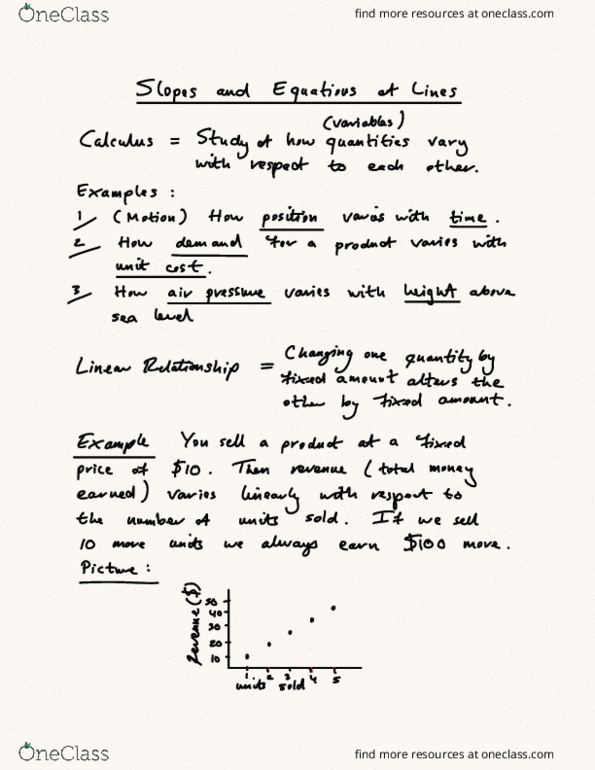 OneClass
find more resources at oneclass.com
Slopes and Equations of Lines
(variables)
Calculus = Study of how quantities vary
with respect to each other.
Examples :
1 (Motion) How position varies with time.
2 How demand for a product varies with
unit cost.
3 How air pressure varies with height above
sea level
Linear Relationship = Changing one quantity by
fixed amount alters the
other by fixed amount.
Example You sell a product at a fixed
price of $10. Then revenue (total money
earned) varies linearly with respect to
the number of units sold. If we sell
10 more units we always earn $100 more.
Picture :
Revenue ($)
50
40
30
20
10
1 2 3 4 5
units sold
OneClass
find more resources at oneclass.com